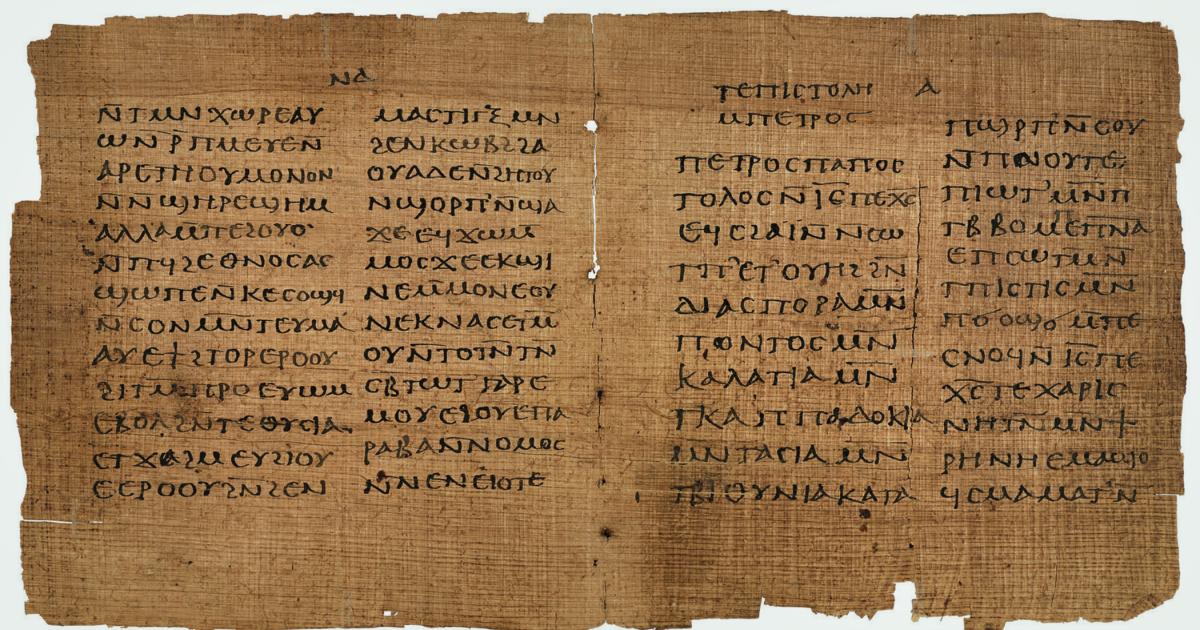 ⲛⲁ
ⲛ̄ⲧⲙⲛⲭⲱⲣⲉⲁⲩ
ⲱⲛⲣ̄ⲡⲙⲉⲩⲉⲛ̄
ⲁⲣⲉⲧⲏⲟⲩⲙⲟⲛⲟⲛ
ⲛ̄ⲛ̄ϣⲏⲣⲉϣⲏⲙ
ⲁⲗⲗⲁⲙ̄ⲡⲉϩⲟⲩⲟ
ⲙ̄ⲡϥϩⲉⲑⲛⲟⲥⲁⲥ
ϣⲱⲡⲉⲛ̄ⲕⲉⲥⲟϣϥ
ⲛ̄ⲥⲟⲛⲙⲛ̄ⲧⲉⲩⲙⲁ
ⲁⲩⲉϯϩⲧⲟⲣⲉⲣⲟⲟⲩ
ϩⲓⲧⲙ̄ⲡⲣⲟⲉⲩⲱⲙ
ⲉⲃⲟⲗϩⲛ̄ⲧⲉⲑⲩⲥⲓⲁ
ⲉⲧϫⲁϩⲙⲉⲩϩⲓⲟⲩ
ⲉⲉⲣⲟⲟⲩϩⲛ̄ϩⲉⲛ
ⲙⲁⲥⲧⲓⲅⲝⲙⲛ
ϩⲉⲛⲕⲱⲃϩ̄ϩⲁ
ⲟⲩⲁⲇⲉⲛ̄ϩⲏⲧⲟⲩ
ⲛϣⲟⲣⲡⲛ̄ϣⲁ
ϫⲉⲉϥϫⲱⲙ
ⲙⲟⲥϫⲉⲉⲕϣⲓ
ⲛⲉⲙ̄ⲙⲟⲛⲉⲟⲩ
ⲛⲉⲕⲛⲁⲥⲉⲧⲙ̄
ⲟⲩⲛ̄ⲧⲟⲧⲛ̄ⲧⲛ
ⲥⲃⲧⲱⲧⲅⲁⲣⲉ
ⲙⲟⲩⲉϩⲟⲩⲉⲡⲁ
ⲣⲁⲃⲁⲛ̄ⲛⲟⲙⲟⲥ
ⲛ̄ⲛⲉⲛⲉⲓⲟⲧⲉ
ⲧⲉⲡⲓⲥⲧⲟⲗⲏ ⲁ
ⲙⲡⲉⲧⲣⲟⲥ
ⲡⲉⲧⲣⲟⲥⲡⲁⲡⲟⲥ
ⲧⲟⲗⲟⲥⲛ̄ⲓ̄ⲥ̄ⲡⲉⲭ̄ⲥ̄
ⲉϥⲥϩⲁⲓ̈ⲛ̄ⲛⲥⲱ
ⲧⲡⲉⲧⲟⲩⲏϩϩⲛ̄
ⲇⲓⲁⲥⲡⲟⲣⲁⲙⲛ̄
ⲡⲟⲛⲧⲟⲥⲙⲛ̄
ⲕⲁⲗⲁⲧⲓⲁⲙⲛ̄
ⲧⲕⲁⲡⲡⲁⲇⲟⲕⲓⲁ
ⲙⲛⲧⲁⲥⲓⲁⲙⲛ̄
ⲧⲃⲓⲑⲩⲛⲓⲁⲕⲁⲧⲁ
ⲡϣⲣⲡⲛ̄ⲥⲟⲩ
ⲛ̄ⲡⲛⲟⲩⲧⲉ
ⲡⲓⲱⲧⲙ̄ⲛ̄ⲡ
ⲧⲃⲃⲟⲙⲡⲉⲡ̄ⲛ̄ⲁ̄
ⲉⲡⲥⲱⲧⲙⲛ̄
ⲧⲡⲓⲥⲧⲓⲥⲙⲛ̄
ⲡϭⲟϣϭ︤ⲙ︥ⲡⲉ
ⲥⲛⲟϥⲛ̄ⲓ̄ⲥ̄ⲡⲉ
ⲭ̄ⲥ̄ⲧⲉⲭⲁⲣⲓⲥ
ⲛⲏⲧⲛ̄ⲙⲛ̄ϯ
ⲣⲏⲛⲏⲉⲙⲁϣⲟ
ϥⲥⲙⲁⲙⲁⲧⲛ̄